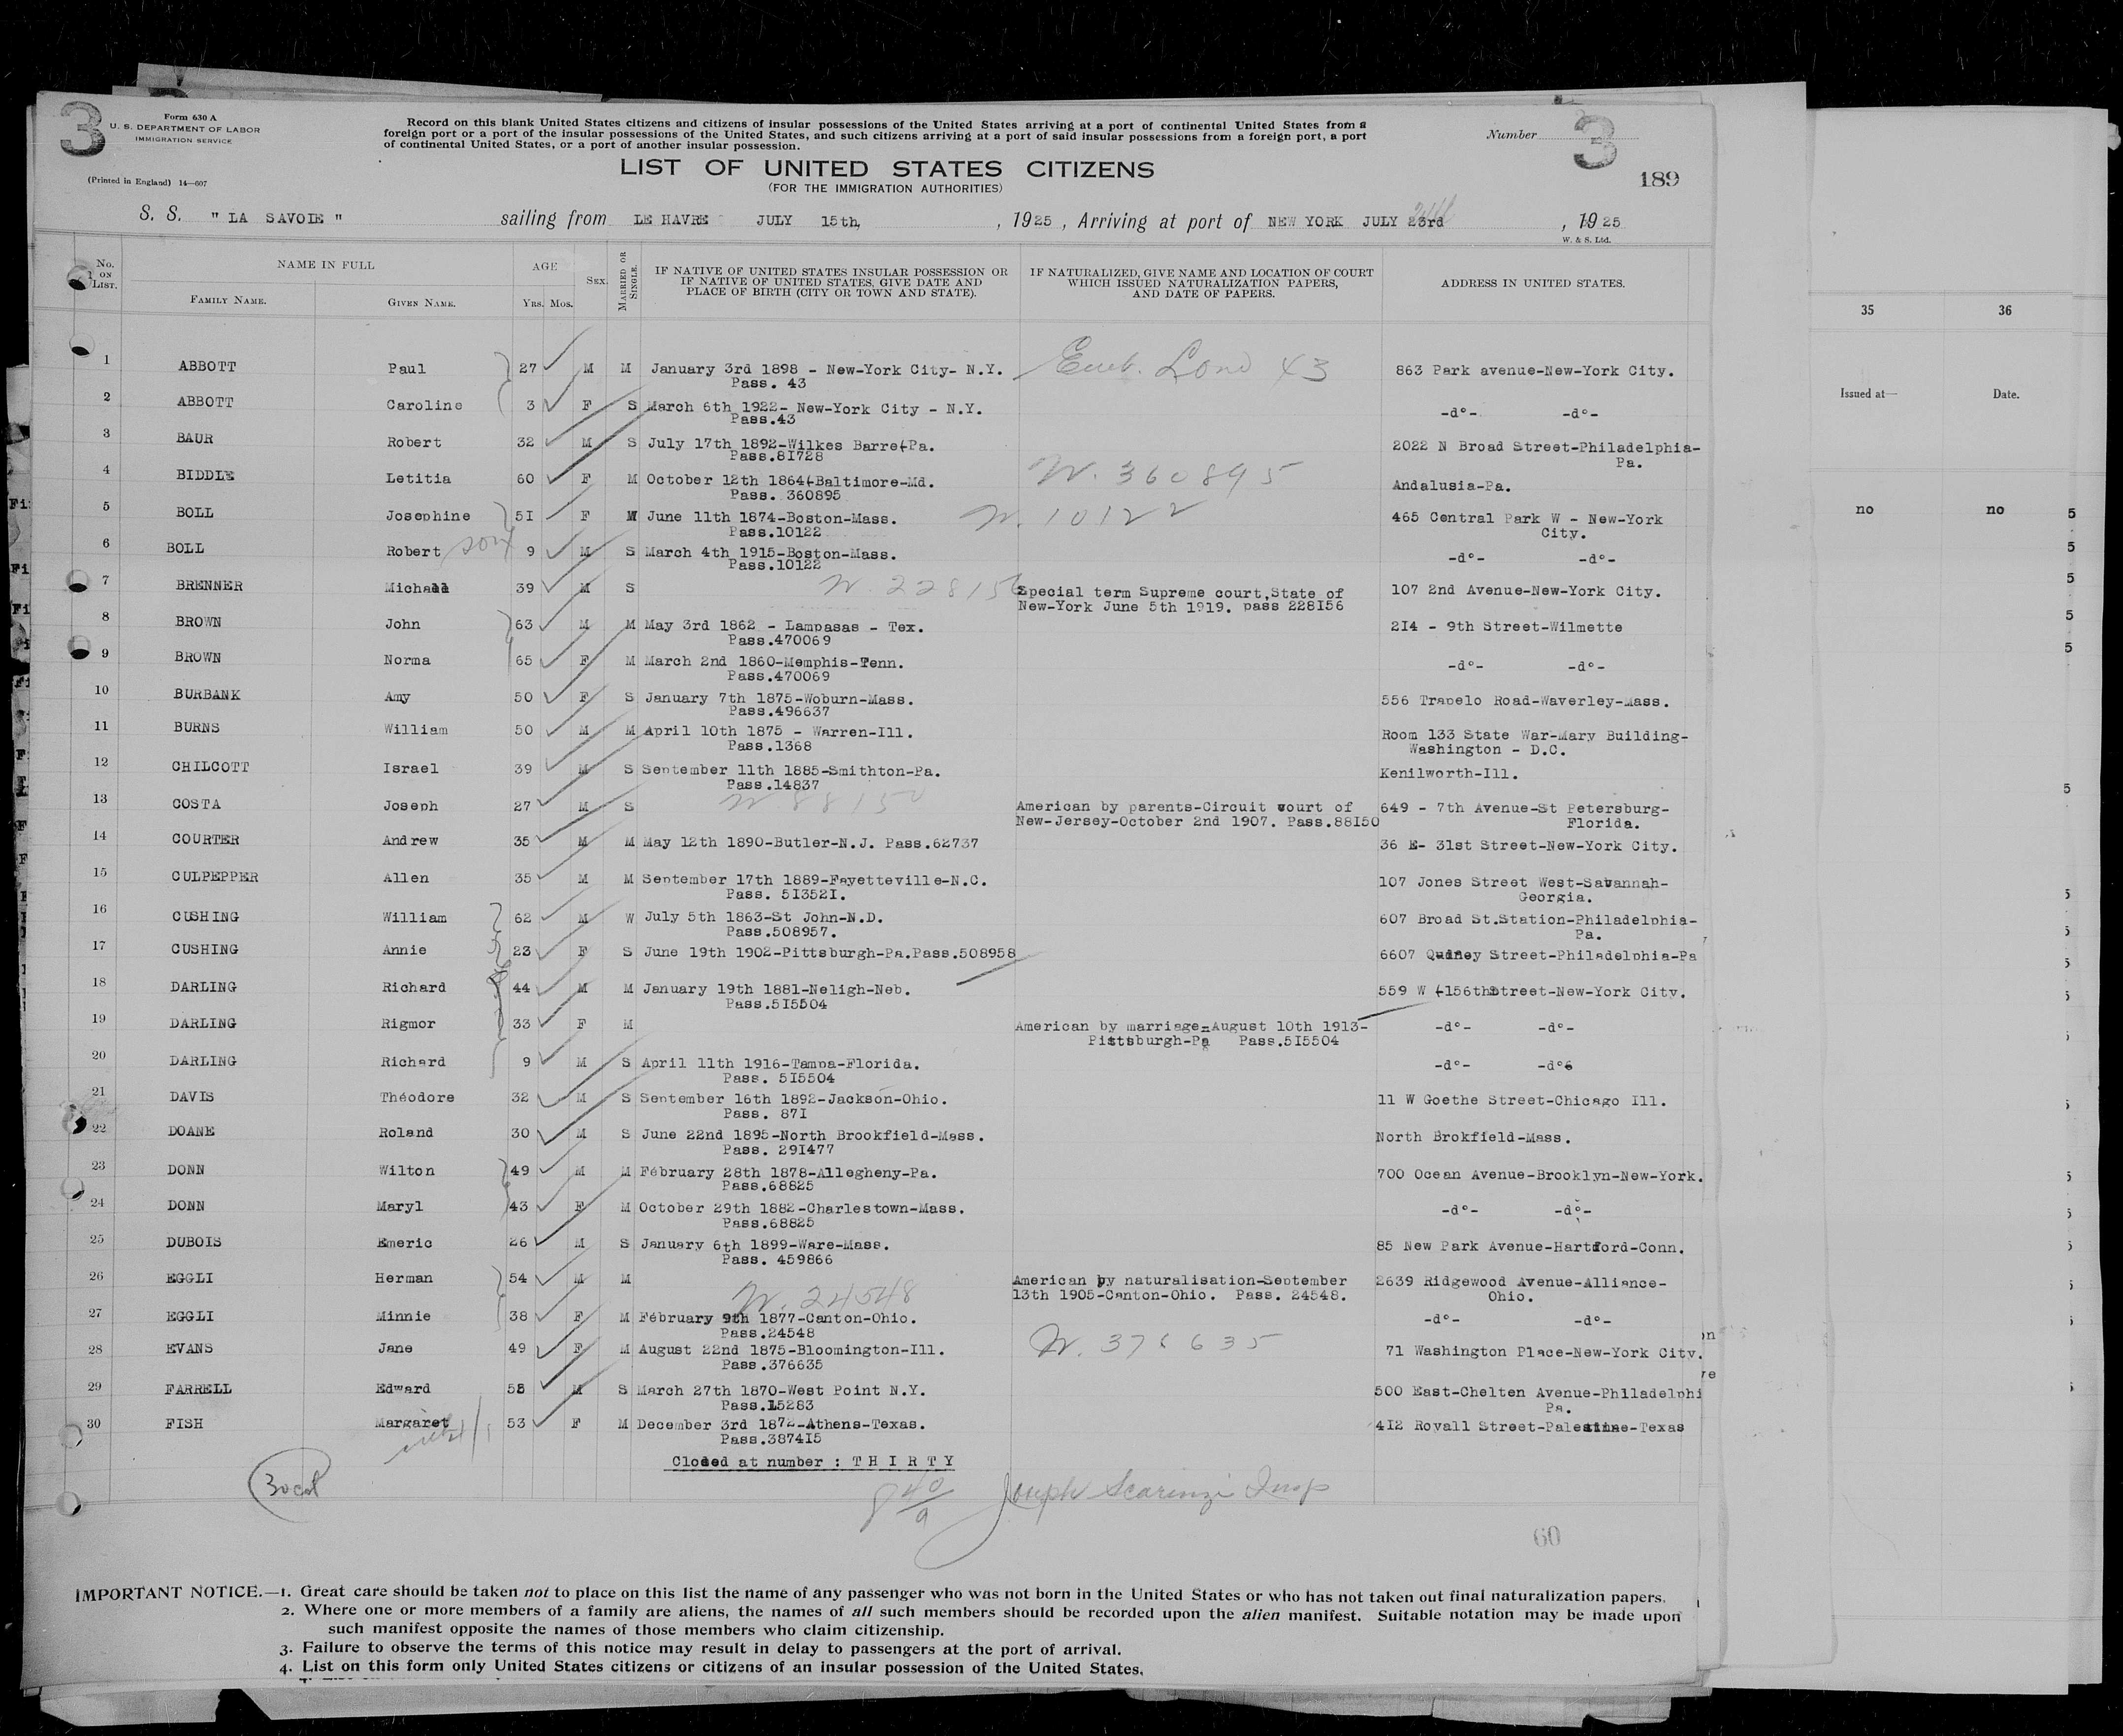 3
Form 630 A
U. S. DEPARTMENT OF LABOR
IMMIGRATION SERVICE
(Printed in England) 14—607
Record on this blank United States citizens and citizens of insular possessions of the United States arriving at a port of continental United States from a
foreign port or a port of the insular possessions of the United States, and such citizens arriving at a port of said insular possessions from a foreign port, a port
of continental United States, or a port of another insular possession.
LIST OF UNITED STATES CITIZENS
(FOR THE IMMIGRATION AUTHORITIES)
Number 3
189
S. S. " LA SAVOIE " sailing from LE HAVRE JULY 15th, , 1925 , Arriving at port of NEW YORK JULY 23rd , 1925
W. & S. Ltd.
No. ON LIST. NAME IN FULL AGE SEX. MARRIED OR SINGLE. IF NATIVE OF UNITED STATES INSULAR POSSESSION OR IF NATIVE OF UNITED STATES, GIVE DATE AND PLACE OF BIRTH (CITY OR TOWN AND STATE). IF NATURALIZED, GIVE NAME AND LOCATION OF COURT WHICH ISSUED NATURALIZATION PAPERS, AND DATE OF PAPERS. ADDRESS IN UNITED STATES.
FAMILY NAME. GIVEN NAME. YRS. MOS.
35 36
Issued at— Date.
no no
1 ABBOTT Paul 27 M M January 3rd 1898 - New-York City- N.Y. Emb. Lond 43 863 Park avenue-New-York City.
Pass. 43
2 ABBOTT Caroline 3 F S March 6th 1922- New-York City - N.Y. -d°- -d°-
Pass.43
3 BAUR Robert 32 M S July 17th 1892-Wilkes Barre-Pa. 2022 N Broad Street-Philadelphia-
Pass.81728 Pa.
4 BIDDLE Letitia 60 F M October 12th 1864-Baltimore-Md. W. 360895 Andalusia-Pa.
Pass. 360895
5 BOLL Josephine 51 F M June 11th 1874-Boston-Mass. W. 10122 465 Central Park W - New-York
Pass.10122 City.
6 BOLL Robert son 9 M S March 4th 1915-Boston-Mass. -d°- -d°-
Pass.10122
7 BRENNER Michael 39 M S W. 228156 Special term Supreme court,State of 107 2nd Avenue-New-York City.
New-York June 5th 1919. pass 228156
8 BROWN John 63 M M May 3rd 1862 - Lampasas - Tex. 214 - 9th Street-Wilmette
Pass.470069
9 BROWN Norma 65 F M March 2nd 1860-Memphis-Tenn. -d°- -d°-
Pass.470069
10 BURBANK Amy 50 F S January 7th 1875-Woburn-Mass. 556 Trapelo Road-Waverley-Mass.
Pass.496637
11 BURNS William 50 M M April 10th 1875 - Warren-Ill. Room 133 State War-Mary Building-
Pass.1368 Washington - D.C.
12 CHILCOTT Israel 39 M S September 11th 1885-Smithton-Pa. Kenilworth-Ill.
Pass.14837
13 COSTA Joseph 27 M S W 88150 American by parents-Circuit court of 649 - 7th Avenue-St Petersburg-
New-Jersey-October 2nd 1907. Pass.88150 Florida.
14 COURTER Andrew 35 M M May 12th 1890-Butler-N.J. Pass.62737 36 E- 31st Street-New-York City.
15 CULPEPPER Allen 35 M M September 17th 1889-Fayetteville-N.C. 107 Jones Street West-Savannah-
Pass. 513521. Georgia.
16 CUSHING William 62 M W July 5th 1863-St John-N.D. 607 Broad St.Station-Philadelphia-
Pass.508957. Pa.
17 CUSHING Annie 23 F S June 19th 1902-Pittsburgh-Pa.Pass.508958 6607 Street-Philadelphia-Pa
18 DARLING Richard 44 M M January 19th 1881-Neligh-Neb. 559 W -156thStreet-New-York City.
Pass.515504
19 DARLING Rigmor 33 F M American by marriage-August 10th 1913- -d°- -d°-
Pittsburgh-Pa Pass.515504
20 DARLING Richard 9 M S April 11th 1916-Tampa-Florida. -d°- -d°-
Pass. 515504
21 DAVIS Théodore 32 M S September 16th 1892-Jackson-Ohio. 11 W Goethe Street-Chicago Ill.
Pass. 871
22 DOANE Roland 30 M S June 22nd 1895-North Brookfield-Mass. North Brokfield-Mass.
Pass. 291477
23 DONN Wilton 49 M M Fébruary 28th 1878-Allegheny-Pa. 700 Ocean Avenue-Brooklyn-New-York.
Pass.68825
24 DONN Maryl 43 F M October 29th 1882-Charlestown-Mass. -d°- -d°-
Pass.68825
25 DUBOIS Emeric 26 M S January 6th 1899-Ware-Mass. 85 New Park Avenue-Hartford-Conn.
Pass. 459866
26 EGGLI Herman 54 M M W. 24548 American by naturalisation-September 2639 Ridgewood Avenue-Alliance-
13th 1905-Canton-Ohio. Pass. 24548. Ohio.
27 EGGLI Minnie 38 F M Fébruary 9th 1877-Canton-Ohio. -d°- -d°-
Pass.24548
28 EVANS Jane 49 F M August 22nd 1875-Bloomington-Ill. W. 376635 71 Washington Place-New-York City.
Pass.376635
29 FARRELL Edward 55 M S March 27th 1870-West Point N.Y. 500 East-Chelten Avenue-Philadelphi
Pass.15283 Pa.
30 FISH Margaret 53 F M December 3rd 1872-Athens-Texas. 412 Royall Street-Palestine-Texas
Pass.387415
Closed at number : T H I R T Y
Joseph Scarinzi Insp
40
9
60
IMPORTANT NOTICE.—1. Great care should be taken not to place on this list the name of any passenger who was not born in the United States or who has not taken out final naturalization papers.
2. Where one or more members of a family are aliens, the names of all such members should be recorded upon the alien manifest. Suitable notation may be made upon
such manifest opposite the names of those members who claim citizenship.
3. Failure to observe the terms of this notice may result in delay to passengers at the port of arrival.
4. List on this form only United States citizens or citizens of an insular possession of the United States.